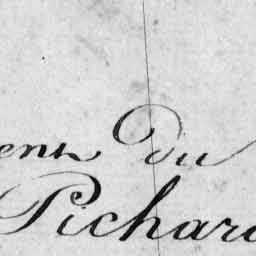 ens du
Pichard